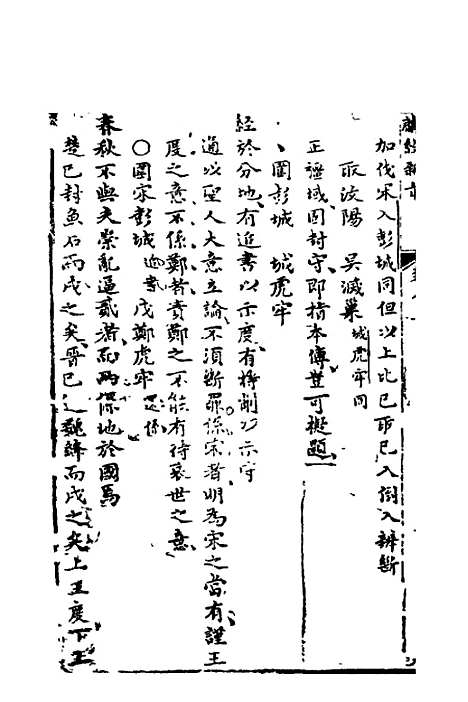 麟經新旨
加伐宋入彭城同但以上比已取已入倒入辨斷
取汶陽　吳滅巢城虎牢同
正疆域固封守即指本傳豈可擬題
圍彭城　城虎牢
經於分地有追書以示度有特削以示守
通以聖人大意立論不須斷罪係宋者明為宋之當有謹王
度之意不係鄭者責鄭之不能有待衰世之意
○圍宋彭城追書　戍鄭虎牢罪係
春秋不與夫崇亂逼貳者而兩係地於國焉
楚已封魚石而戍之矣晉已 魏絳而戍之矣上王度下王